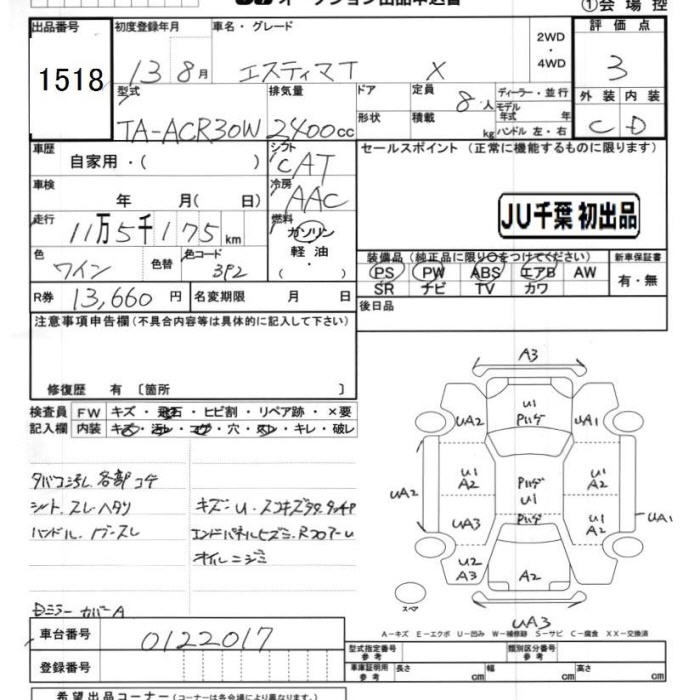 ①会場控
オークション出品申込書
出品番号 初度登録年月 車名・グレード 2WD・4WD 評価点
1518 13 8月 エスティマT X 3
型式 排気量 ドア 定員 8人 ディーラー・並行 外装 内装
TA-ACR30W 2400cc 形状 積載 kg モデル年式 年 ハンドル 左・右 C D
車歴 自家用・( ) シフト CAT セールスポイント (正常に機能するものに限ります)
車検 年 月( 日) 冷房 AAC
JU千葉 初出品
走行 11万5千175km 燃料 ガソリン 軽油 ・( )
色 ワイン 色替 色コード 3P2 装備品 (純正品に限り○をつけてください) 新車保証書
PS PW ABS エアB AW 有・無
SR ナビ TV カワ
R券 13,660円 名変期限 月 日 後日品
注意事項申告欄 (不具合内容等は具体的に記入して下さい)
修復歴 有 〔箇所 〕
検査員 FW キズ・飛石・ヒビ割・リペア跡・×要
記入欄 内装 キズ・汚レ・コゲ・穴・スレ・キレ・破レ
タバコ汚レ 各部コゲ
シート.スレ.ヘタリ キズ-U.
ハンドル.
オイルニジミ
Dミラーカバー A
A3
UA2 U1 Pハゲ UA1
UA2 U1 A2 Pハゲ U1 U1 A2 UA1
UA3 Pハゲ U1 A2
U2 A3 A2
スペア UA3
A-キズ E-エクボ U-凹み W-補修跡 S-サビ C-腐食 XX-交換済
車台番号 0122017
型式指定番号 参考 類別区分番号 参考
登録番号 車庫証明用 参考 長さ cm 幅 cm 高さ cm
希望出品コーナー (コーナーは各会場により異なります。)